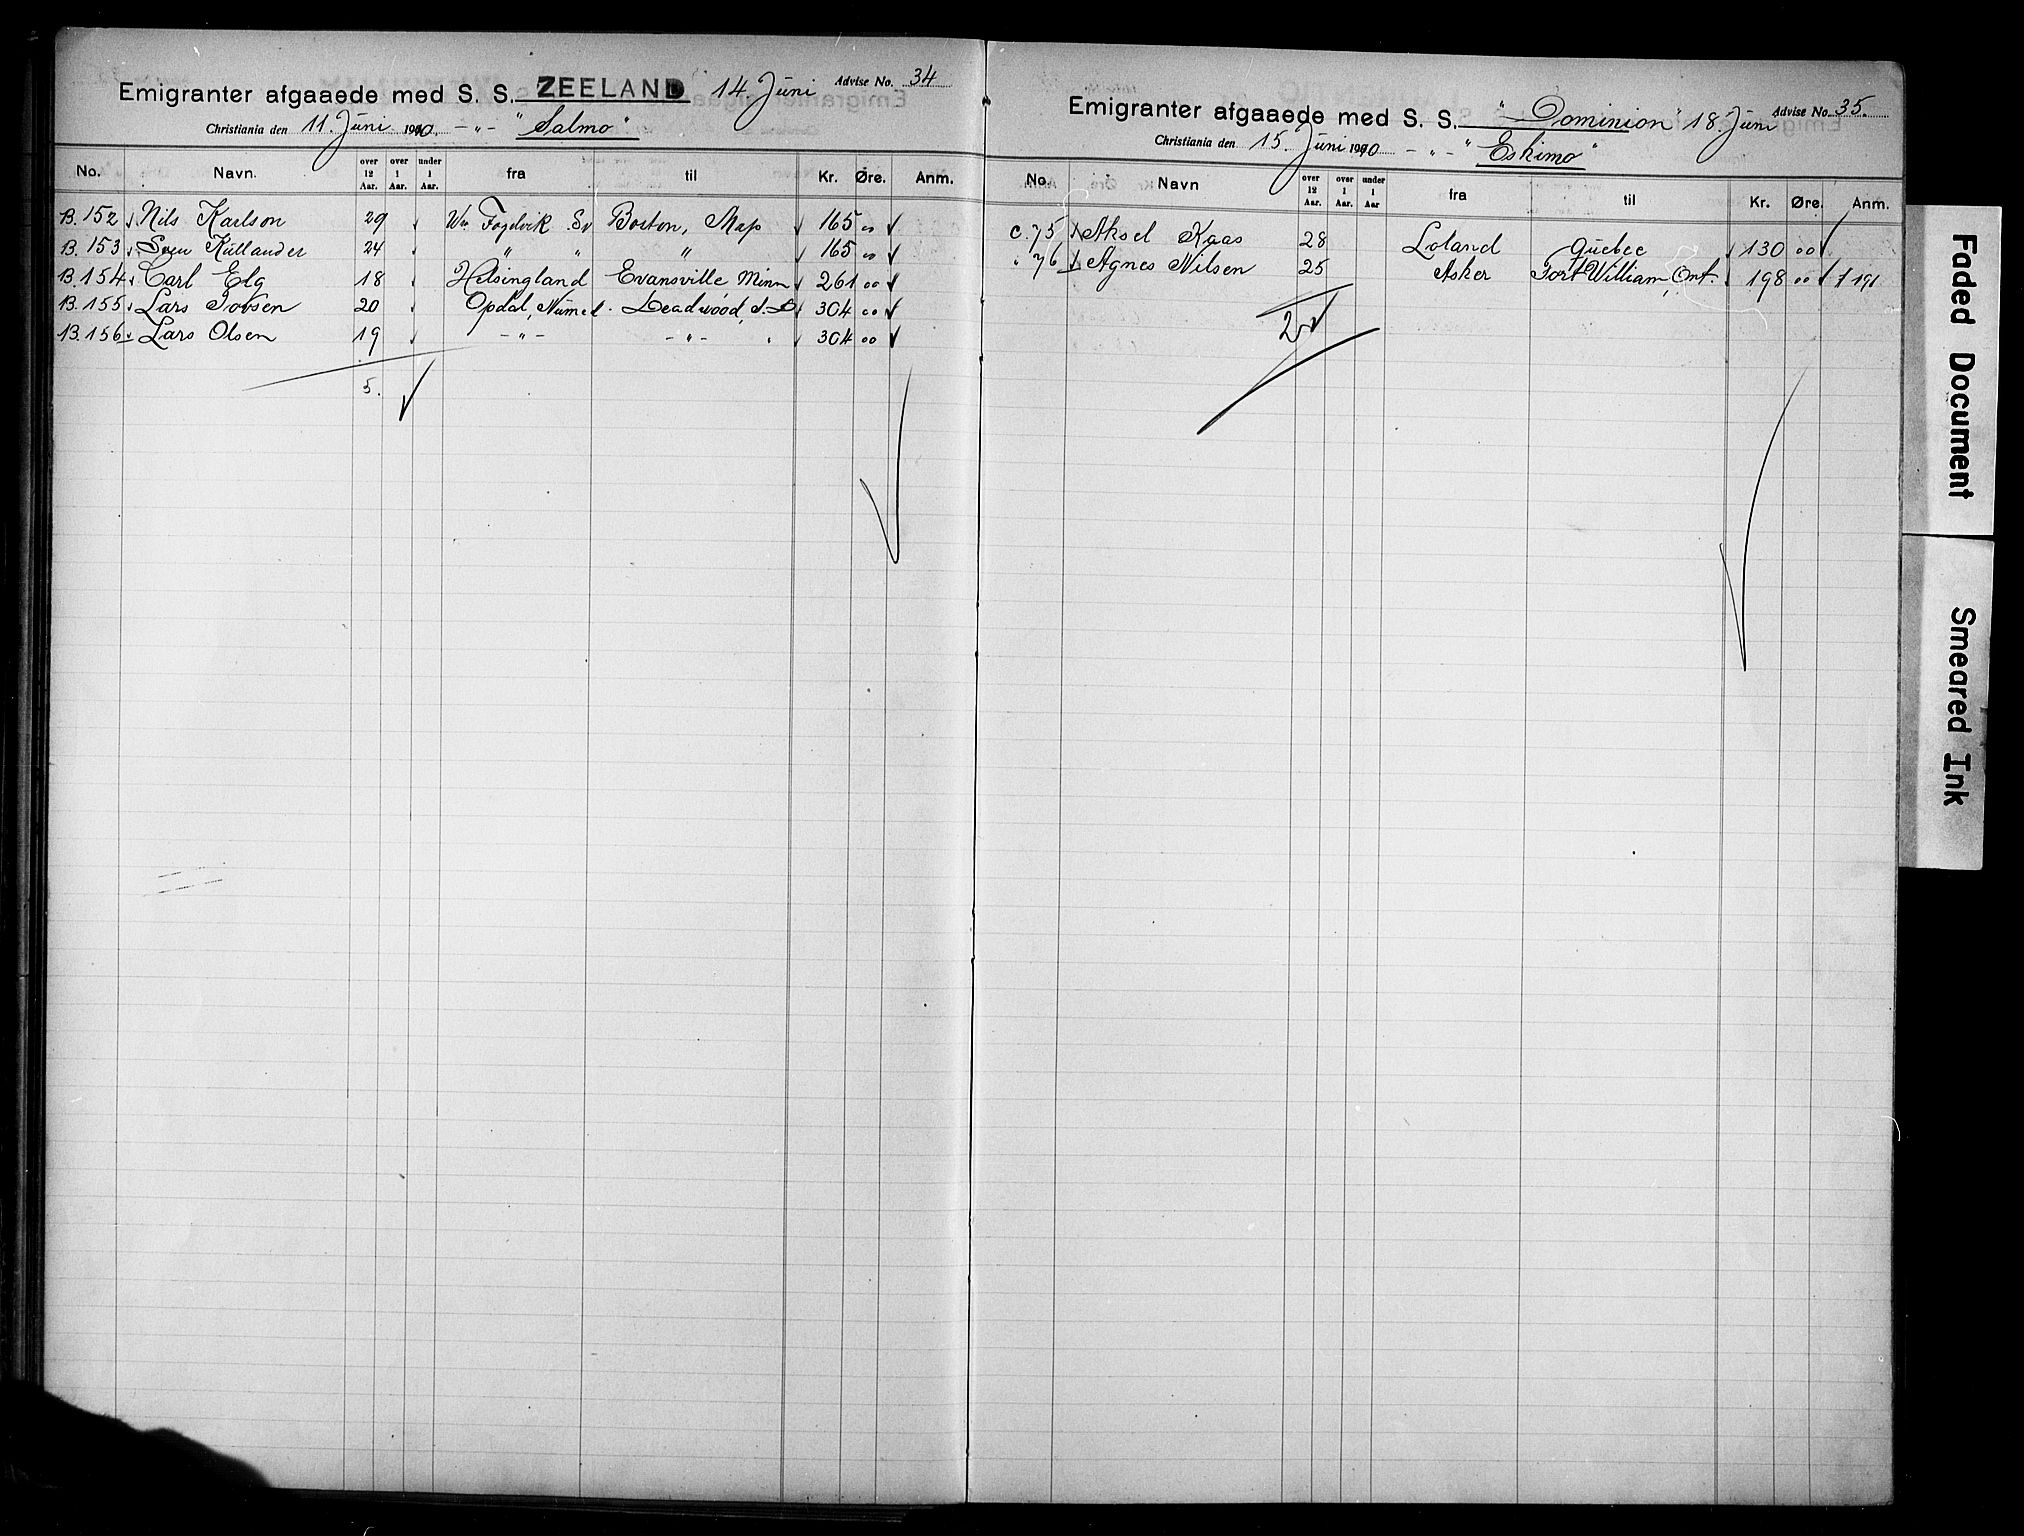 Emigranter afgaaede med S. S. ZEELAND 14. Juni Advise No. 34
Christiania den 11. Juni 1910 - " - "Salmo"
No. Navn. over 12 Aar. over 1 Aar. under 1 Aar. fra til Kr. Øre. Anm.
B. 152 Nils Karlson 29 Boston, Mass 165 00
B. 153 Sven Kullander 24 " " " 165 00
B. 154 Carl Elg 18 Helsingland Evansville Minn 261 00
B. 155 Lars 20 Opdal, Numed. Deadwood, S. D 304 00
B. 156 Lars Olsen 19 - " - - " - 304 00
5.
Emigranter afgaaede med S. S. "Dominion" 18. Juni Advise No. 35.
Christiania den 15. Juni 1910 - " - "Eskimo"
No. Navn over 12 Aar. over 1 Aar. under 1 Aar fra til Kr. Øre. Anm.
C. 75 Aksel Kaas 28 Loland Quebec 130 00
" 76 Agnes Nilsen 25 Asker Fort William, Ont. 198 00
2
Faded Document
Smeared Ink